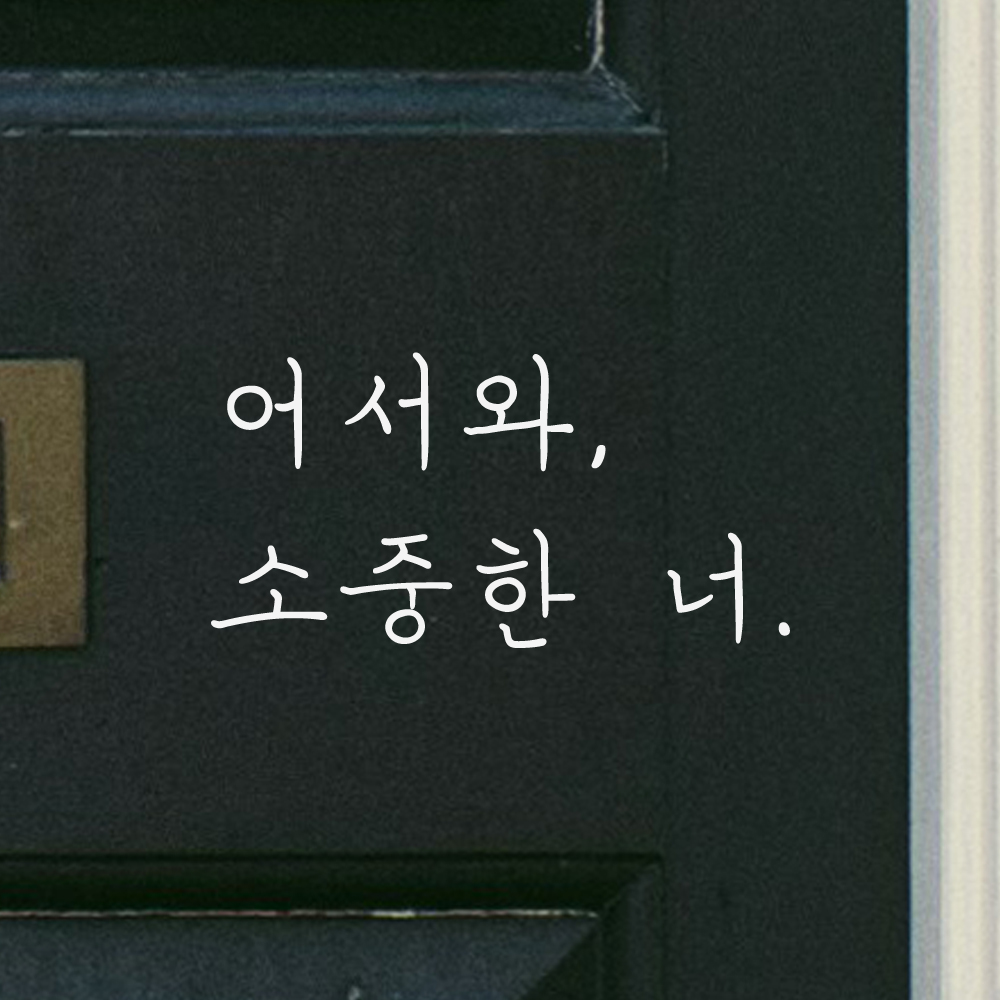 어서와,
소중한 너.